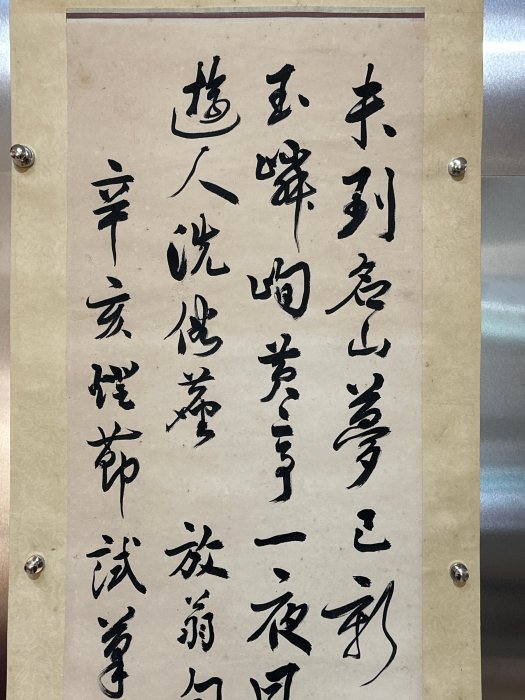 未到名山夢已新
玉嶙峋黄亭一夜風
遊人洗俗塵 放翁句
辛亥燈節試筆